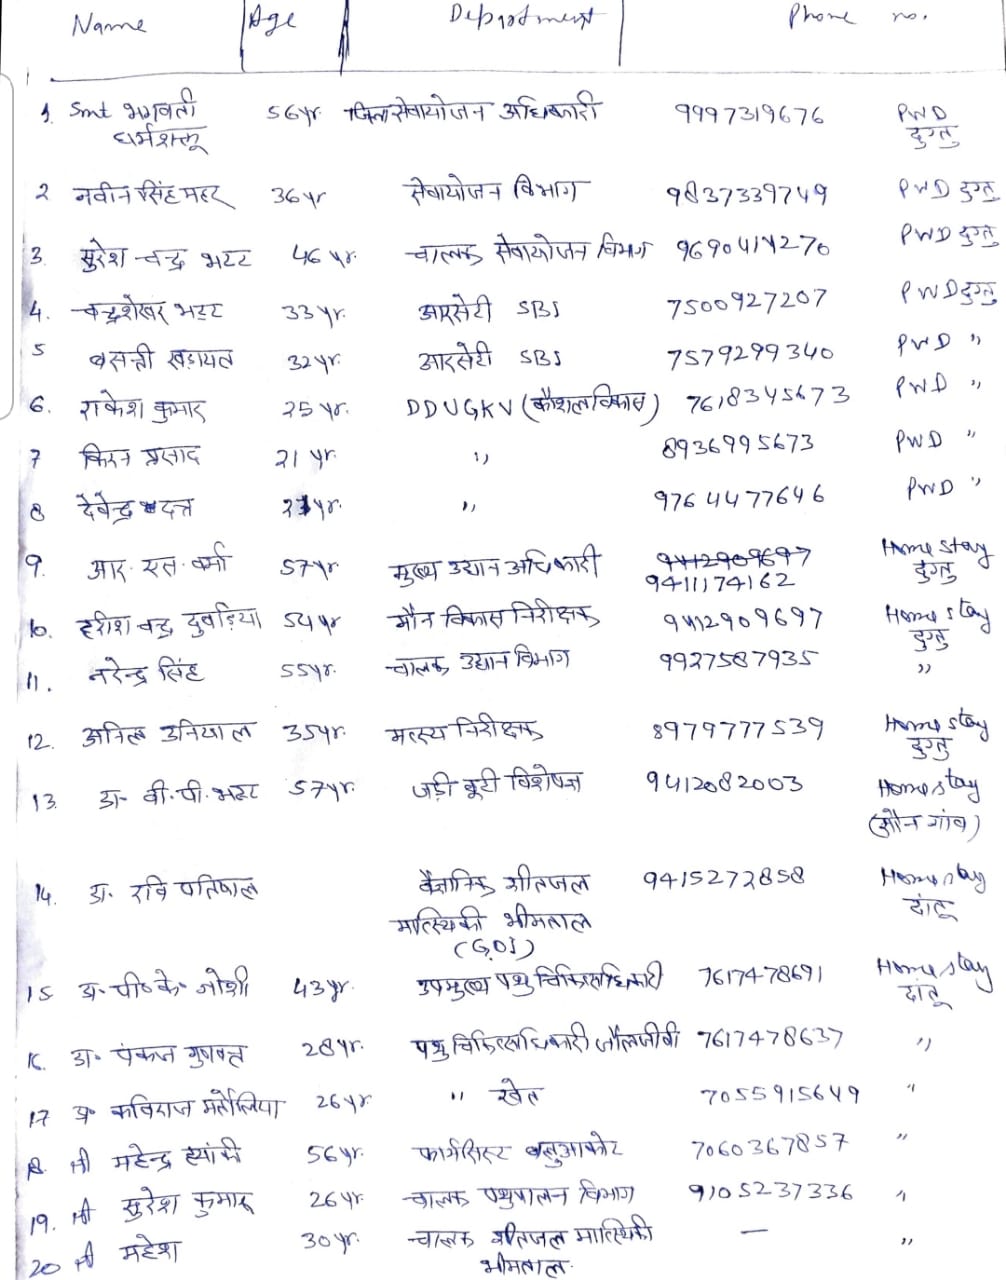 Name Age Department Phone no.
1. Smt भगवती 56yr जिला सेवायोजन अधिकारी 9997319676 PWD
धर्मशक्तू दुग्तु
2 नवीन सिंह महर 36yr सेवायोजन विभाग 9837339749 PWD दुग्तु
3. सुरेश चन्द्र भट्ट 46 yr. चालक सेवायोजन विभाग 9690414270 PWD दुग्तु
4. चन्द्रशेखर भट्ट 33yr. आरसेटी SBI 7500927207 PWD दुग्तु
5 बसन्ती खड़ायत 32yr. आरसेटी SBI 7579299340 PWD "
6. राकेश कुमार 25 yr. DDUGKV (कौशल विकास) 7618345673 PWD "
7 किरन प्रसाद 21 yr. " 8936995673 PWD "
8 देवेन्द्र दत्त yr. " 9764477646 PWD "
9. आर. एल. वर्मा 57yr मुख्य उद्यान अधिकारी 9412909697 Home stay
9411174162 दुग्तु
10. हरीश चन्द्र दुबड़िया 54yr मौन विकास निरीक्षक 9412909697 Home stay
दुग्तु
11. नरेन्द्र सिंह 55yr. चालक उद्यान विभाग 9927587935 "
12. अनिल उनियाल 35yr. मत्स्य निरीक्षक 8979777539 Home stay
दुग्तु
13. डा. वी.पी. भट्ट 57yr. जड़ी बूटी विशेषज्ञ 9412082003 Home stay
(सौन गांव)
14. डा. रवि पतियाल वैज्ञानिक शीतजल 9415272858 Home stay
मात्स्यिकी भीमताल दांतू
(GOI)
15 डा. पी० के० जोशी 43yr. उपमुख्य पशु चिकित्साधिकारी 7617478691 Home stay
दांतू
16. डा. पंकज गुणवन्त 28yr. पशु चिकित्साधिकारी जौलजीबी 7617478637 "
17 डा० कविराज मर्तोलिया 26yr " खेत 7055915649 "
18. श्री महेन्द्र ह्यांकी 56yr. फार्मासिस्ट बलुआकोट 7060367857 "
19. श्री सुरेश कुमार 26yr. चालक पशुपालन विभाग 9105237336 "
20 श्री महेश 30yr. चालक शीतजल मात्स्यिकी — "
भीमताल.